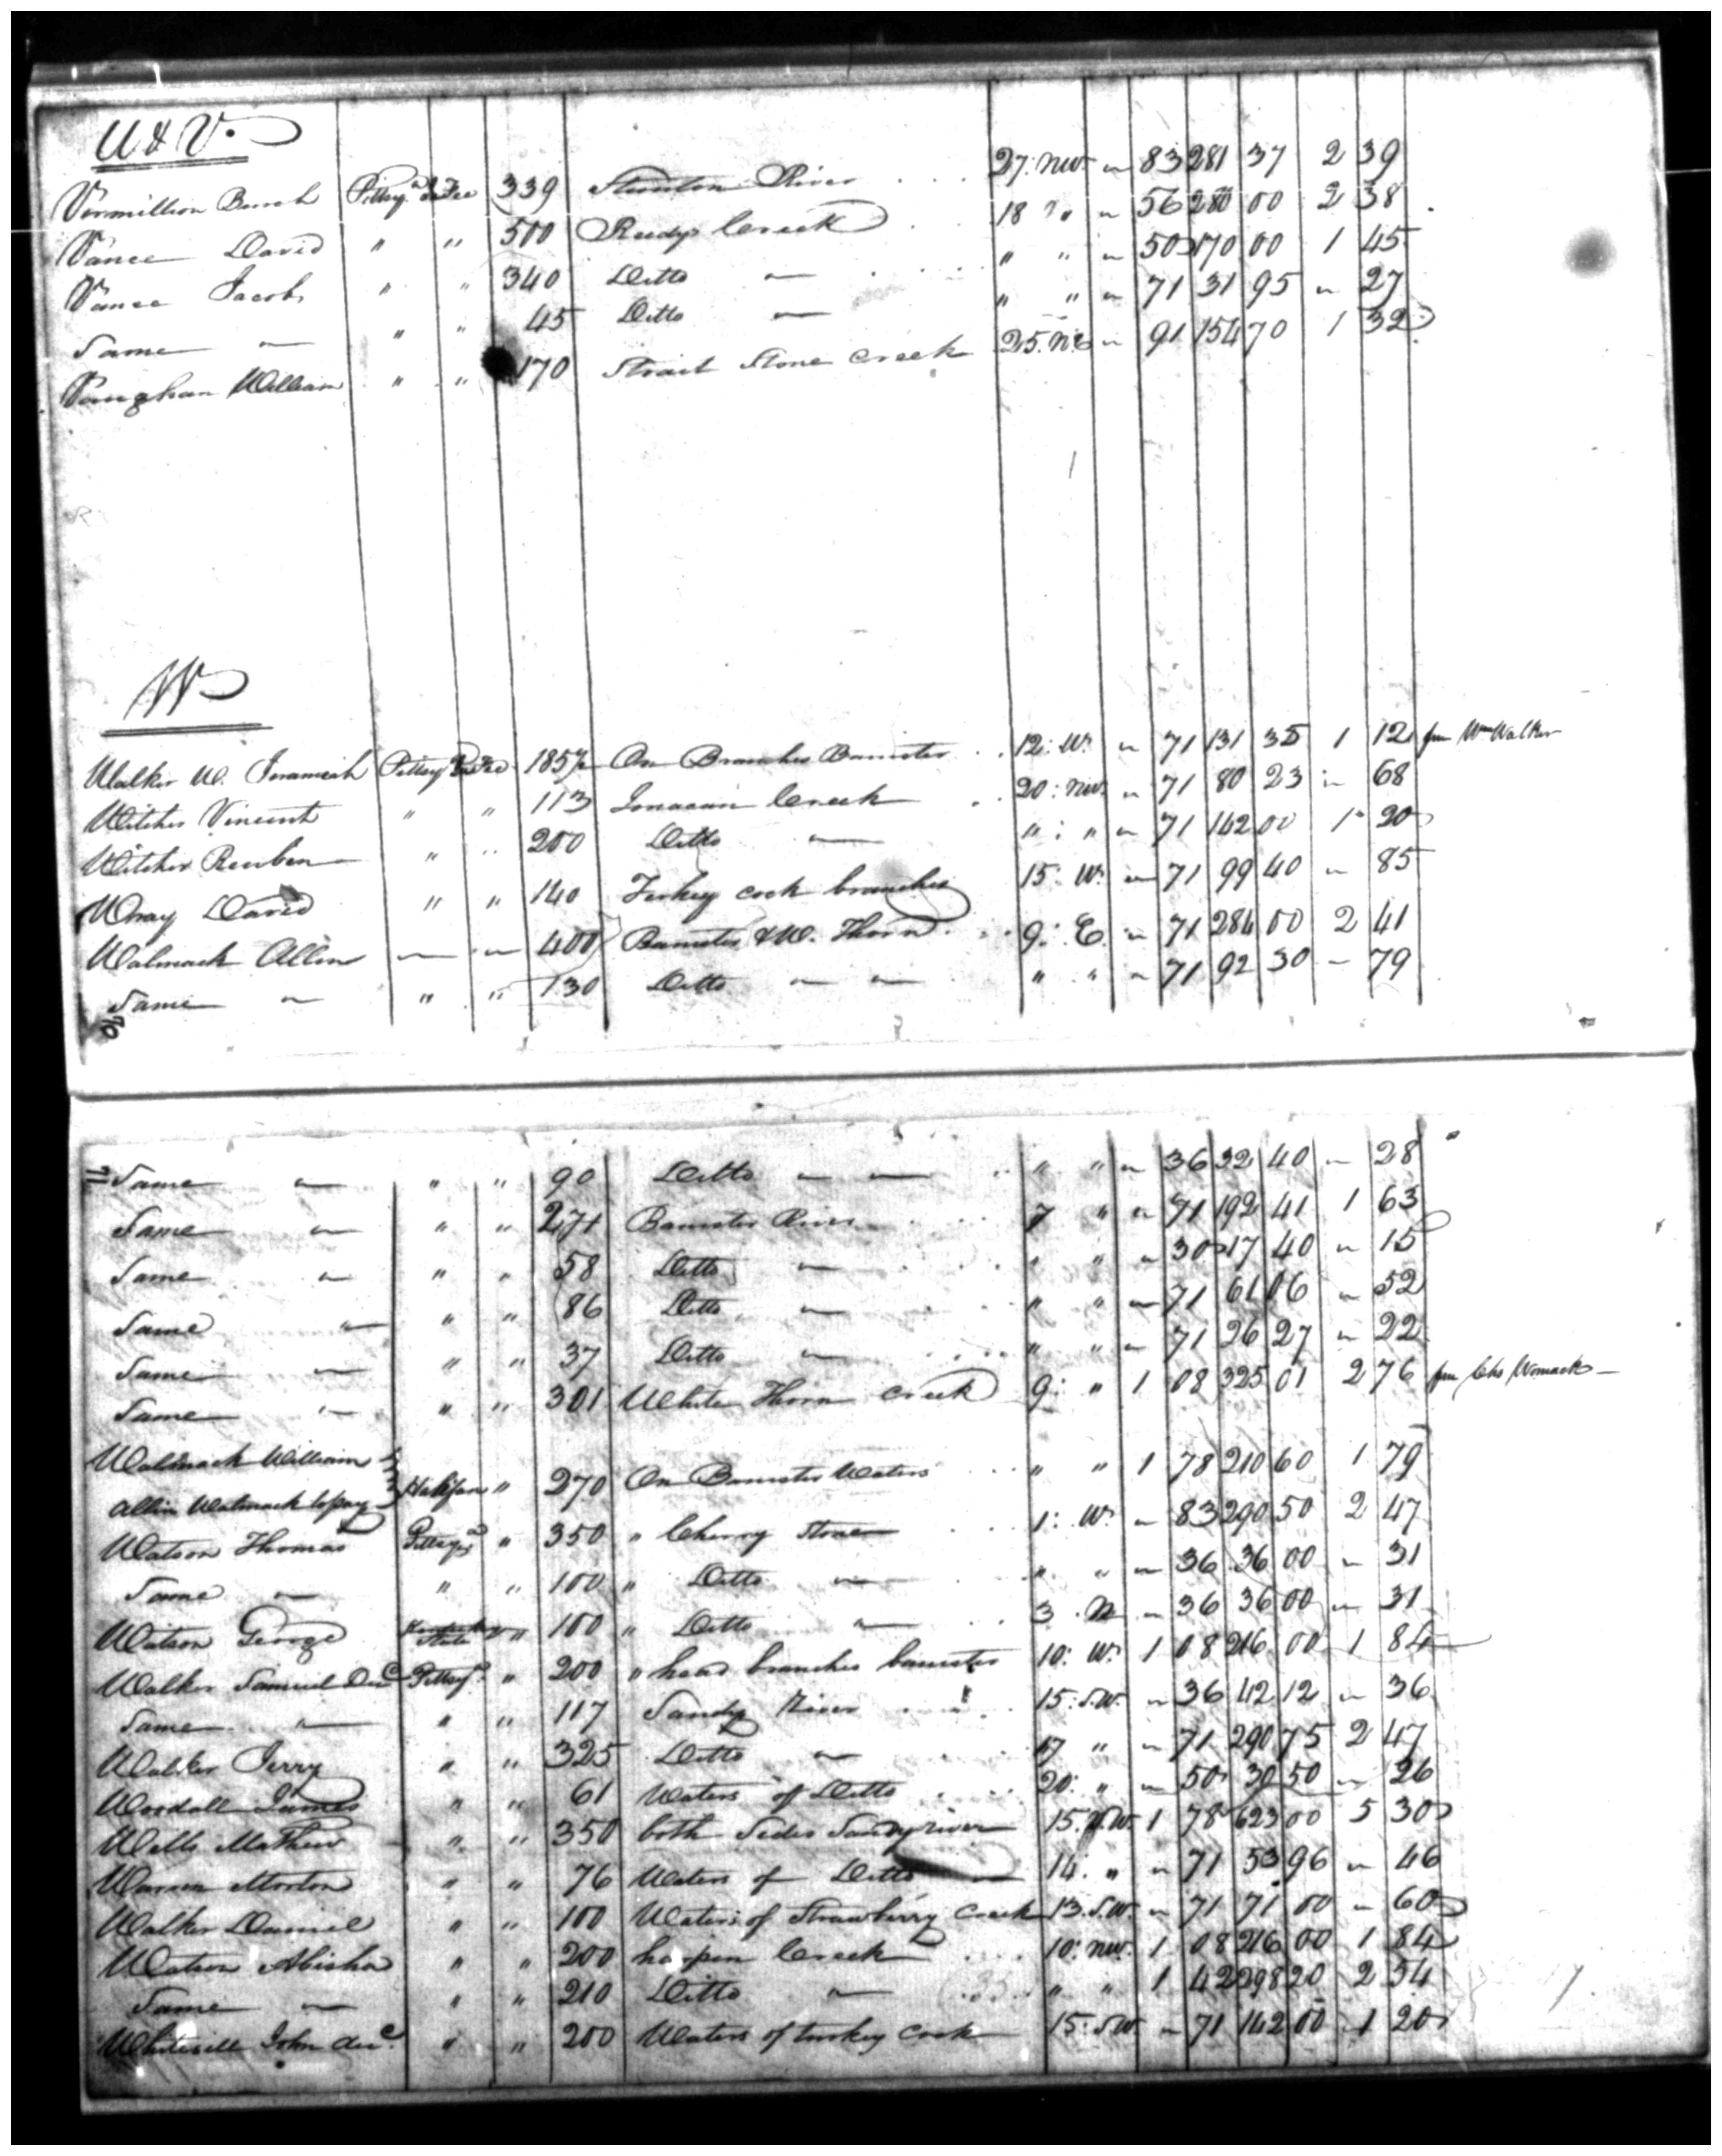 U & V.
Vermillion Burch Pittsy.a In Fee 339 Staunton River 27: NW. " 83 281 37 2 39
Vance David " " 500 Reedy Creek 18 " " 56 280 00 2 38
Vance Jacob " " 340 Ditto " " " 50 170 00 1 45
Same " " 45 Ditto " " " 71 31 95 " 27
Vaughan William " " 170 Strait Stone Creek 25. NE " 91 154 70 1 32
W
Walker W. Jeramiah Pittsy In Fee 185 On Branches Banister 12: W. " 71 131 35 1 12 from Wm Walker
Witcher Vincent " " 113 Creek 20: NW. " 71 80 23 " 68
Witcher Reuben " " 200 Ditto " : " " 71 142 00 1 20
Wray David " " 140 Turkey cock branches 15. W. " 71 99 40 " 85
Walmack Allen " " 400 Banister & W. Thorn 9: E. " 71 284 00 2 41
Same " " " 130 Ditto " " " " " 71 92 30 " 79
70
71 Same " " " 90 Ditto " " " " " 36 32 40 " 28
Same " " " 271 Banister River 7 " " 71 192 41 1 63
Same " " " 58 Ditto " " " " 30 17 40 " 15
Same " " " 86 Ditto " " " " 71 61 06 " 52
Same " " " 37 Ditto " " " " 71 26 27 " 22
Same " " " 301 White Thorn Creek 9: " 1 08 325 01 2 76 from Chs Womack
Walmack William
Allin Walmack to pay Halifax " 270 On Banister Waters " " 1 78 210 60 1 79
Watson Thomas Pittsya " 350 " Cherry Stone 1: W. " 83 290 50 2 47
Same " " " 100 " Ditto " " " " 36 36 00 " 31
Watson George State " 100 " Ditto " 3. N " 36 36 00 " 31
Walker Samuel Decd Pittsya " 200 " head branches banister 10: W. 1 08 216 00 1 84
Same " " " 117 Sandy River 15: S.W. " 36 42 12 " 36
Walker Jerry " " 325 Ditto " 17 " " 71 290 75 2 47
Woodall James " " 61 Waters of Ditto 20: " " 50 30 50 " 26
Wells Mathew " " 350 both Sides Sandy river 15. S.W. 1 78 623 00 5 30
Warren Morton " " 76 Waters of Ditto 14. " " 71 53 96 " 46
Walker Daniel " " 100 Waters of Strawberry Creek 13. S.W. " 71 71 00 " 60
Watson Abisha " " 200 harpen Creek 10: NW. 1 08 216 00 1 84
Same " " " 210 Ditto " " " 1 42 298 20 2 54
John decd " " 200 Waters of turkey Cock 15: SW. " 71 142 00 1 20